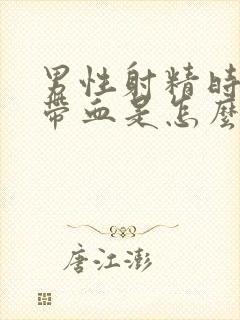 男性射精時
帶血是怎麼
唐江澎